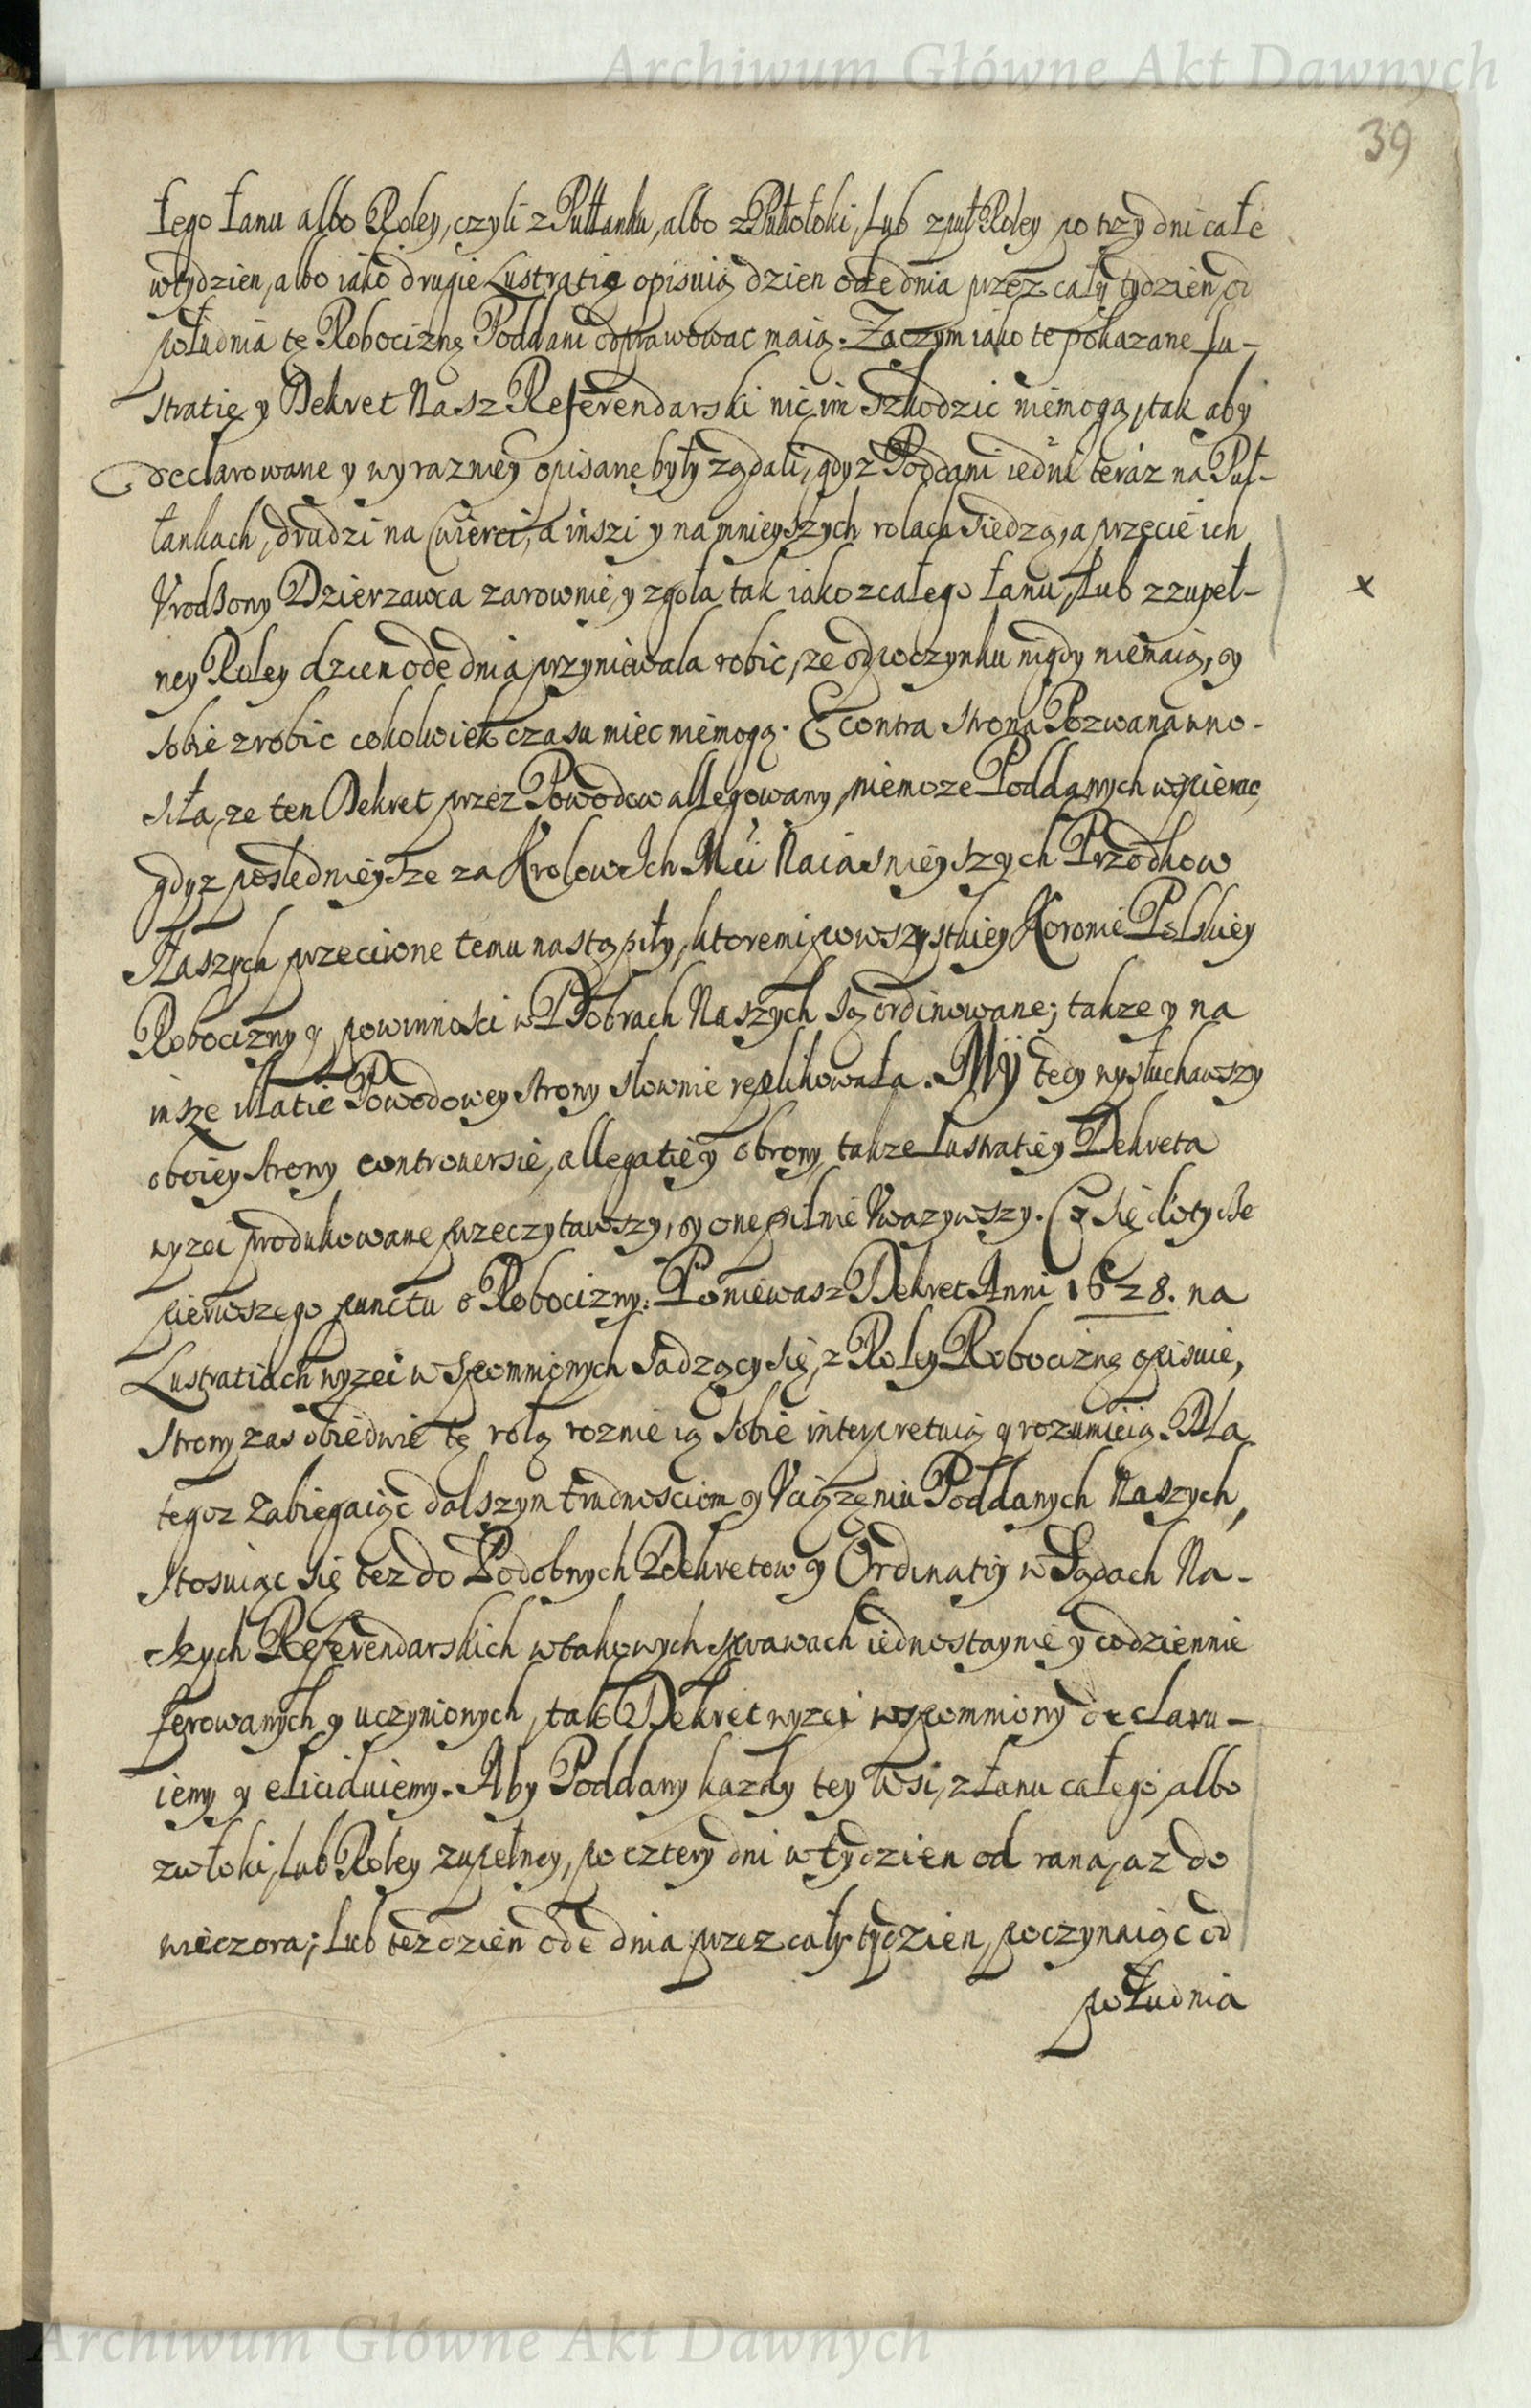 Archiwum Główne Akt Dawnych
39
łego łanu albo Roley, czyli z Pułłanku, albo z Pułwłoki, lub z puł Roley po trzy dni całe
w tydzien, albo iako drugie Lustratią opisuią dzien ode dnia przez cały tydzien od
południa tę Robociznę Poddani odprawować maią. Zaczym iako te pokazane Lu-
stratię y Dekret Nasz Referendarski nic im szkodzic niemogą, tak aby
declarowane y wyrazniey opisane były żądali, gdyz Poddani iedni teraz na Puł-
łankach, drudzi na Cwierci, a inszi y na mnieyszych rolach siedzą, a przecie ich
Vrodzony Dzierzawca zarownie, y zgoła tak iako z całego łanu, lub z zupeł-
ney Roley dzien ode dnia przyniewala robic, ze odpoczynku nigdy niemaią, y
sobie zrobic cokolwiek czasu miec niemogą. E contra strona Pozwana wno-
siła, ze ten Dekret przez Powodow allegowany, niemoze Poddanych wspierac,
gdyz poslednieysze za Krolow Ich Mći Naiasnieyszych Przodkow
Naszych przeciwne temu nastąpiły, ktoremi po wszystkiey Koronie Polskiey
Robocizny y powinnosci w Dobrach Naszych są ordinowane; takze y na
insze illatie Powodowey strony słownie replikowała. My tedy wysłuchawszy
oboiey strony controuersie, allegatie y obrony, takze Lustratie y Dekreta
wyzei produkowane przeczytawszy, y one pilnie Vwazywszy. Co się dotycze
pierwszego punctu o Robocizny: Poniewasz Dekret Anni 1628. na
Lustratiach wyzei wspomnionych sadzący się, z Roley Robociznę opisuie,
Strony zas obiedwie tę rolą roznie ią sobie interpretuią y rozumieią. Dla
tegoz zabiegaiąc dalszym trudnosciom y Vciązeniu Poddanych Naszych,
stosuiąc się tez do Podobnych Dekretow y Ordinatiy w Sądach Na-
szych Referendarskich w takowych sprawach iednostaynie y codziennie
ferowanych y uczynionych, tak Dekret wyzei wspomniony declaru-
iemy y eliciduiemy. Aby Poddany kazdy tey Wsi, z łanu całego, albo
z włoki, lub Roley zupełney, po cztery dni w tydzien od rana, az do
wieczora; lub tez dzien ode dnia przez cały tydzien, poczynaiąc od
południa
Archiwum Główne Akt Dawnych